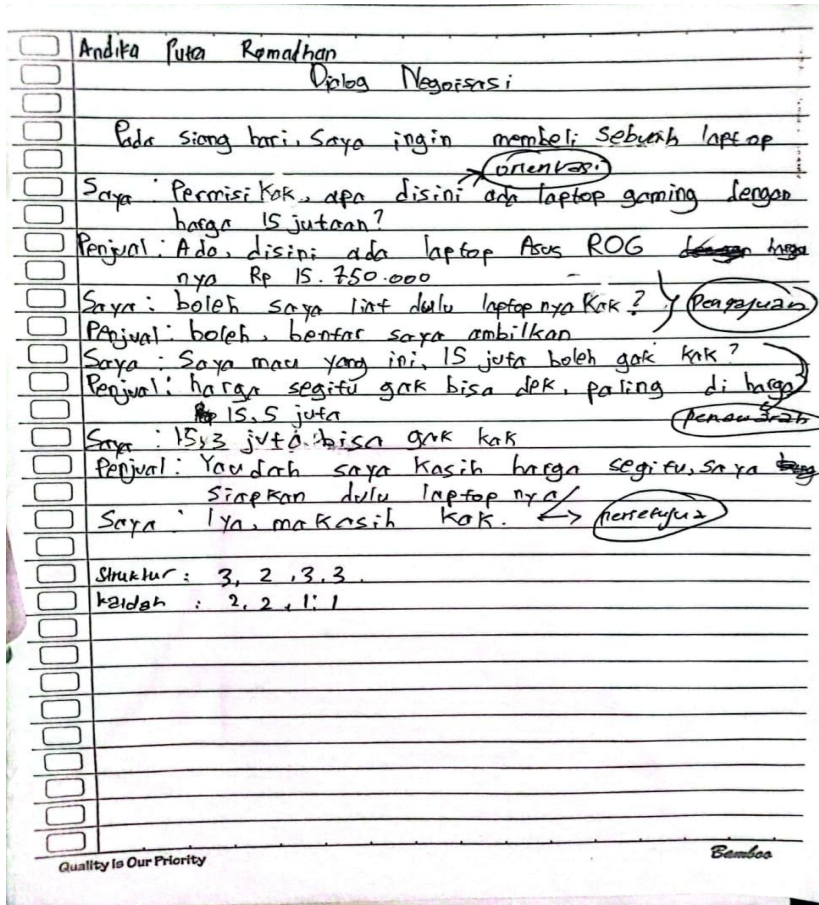 Andika Putra Ramadhan
Dialog Negoisasi
Pada siang hari, saya ingin membeli sebuah laptop
orientasi
Saya : Permisi kak, apa disini ada laptop gaming dengan
harga 15 jutaan?
Penjual : Ada, disini ada laptop Asus ROG harga
nya Rp 15.750.000
Saya : boleh saya liat dulu laptop nya kak?
Pengajuan
Penjual : boleh, bentar saya ambilkan
Saya : Saya mau yang ini, 15 juta boleh gak kak?
Penjual : harga segitu gak bisa dek, paling di harga
15,5 juta
penawaran
Saya : 15,3 juta bisa gak kak
Penjual : Yaudah saya kasih harga segitu, saya
siapkan dulu laptop nya
Saya : Iya, makasih kak.
persetujua
Struktur : 3, 2, 3, 3.
kaidah : 2, 2, 1, 1
Quality Is Our Priority
Bamboo